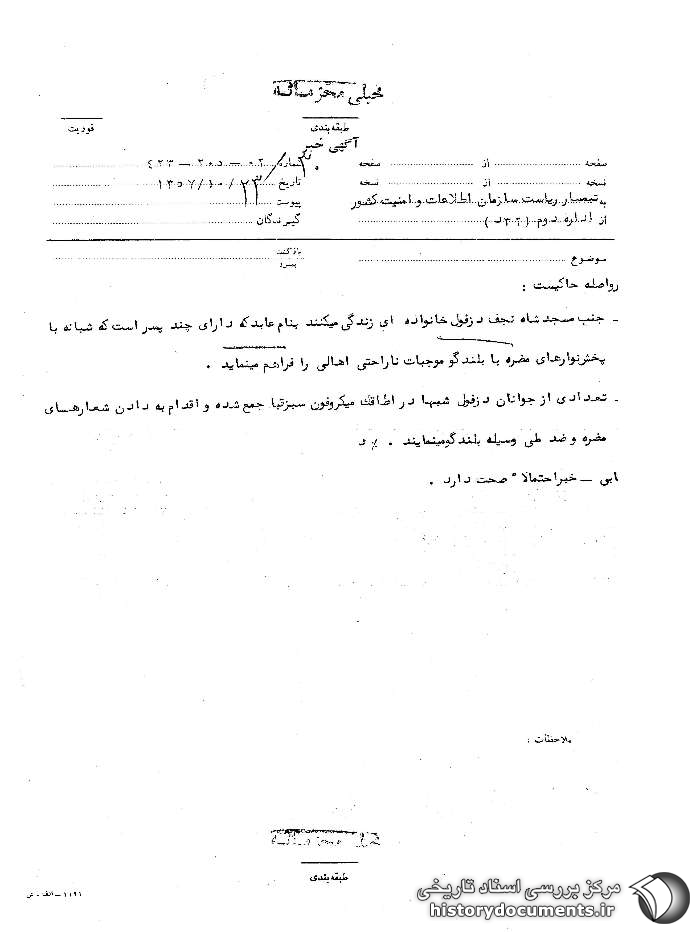 خیلی محرمانه
طبقه‌بندی
فوریت
آگهی خبر
صفحه از صفحه
شماره ۰۲ - ۲۰۵ - ۴۲۳
نسخه از نسخه
تاریخ ۲۳/۱۰/۱۳۵۷
به تیمسار ریاست سازمان اطلاعات و امنیت کشور
پیوست
از اداره دوم (۳۲۰ د)
گیرندگان
موضوع
بازگشت
پیرو
رواصله حاکیست :
- جنب مسجد شاه نجف دزفول خانواده ای زندگی میکنند بنام عابد که دارای چند پسر است که شبانه با
پخش نوارهای مضره با بلندگو موجبات ناراحتی اهالی را فراهم مینماید .
- تعدادی از جوانان دزفول شبها در اطاقک میکروفون سبزقبا جمع شده و اقدام به دادن شعارهای
مضره و ضد ملی وسیله بلندگو مینمایند . ٪ د
ابی - خبر احتمالا" صحت دارد .
ملاحظات :
خیلی محرمانه
طبقه‌بندی
۱۱۲۱ - الف - ش
مرکز بررسی اسناد تاریخی
historydocuments.ir